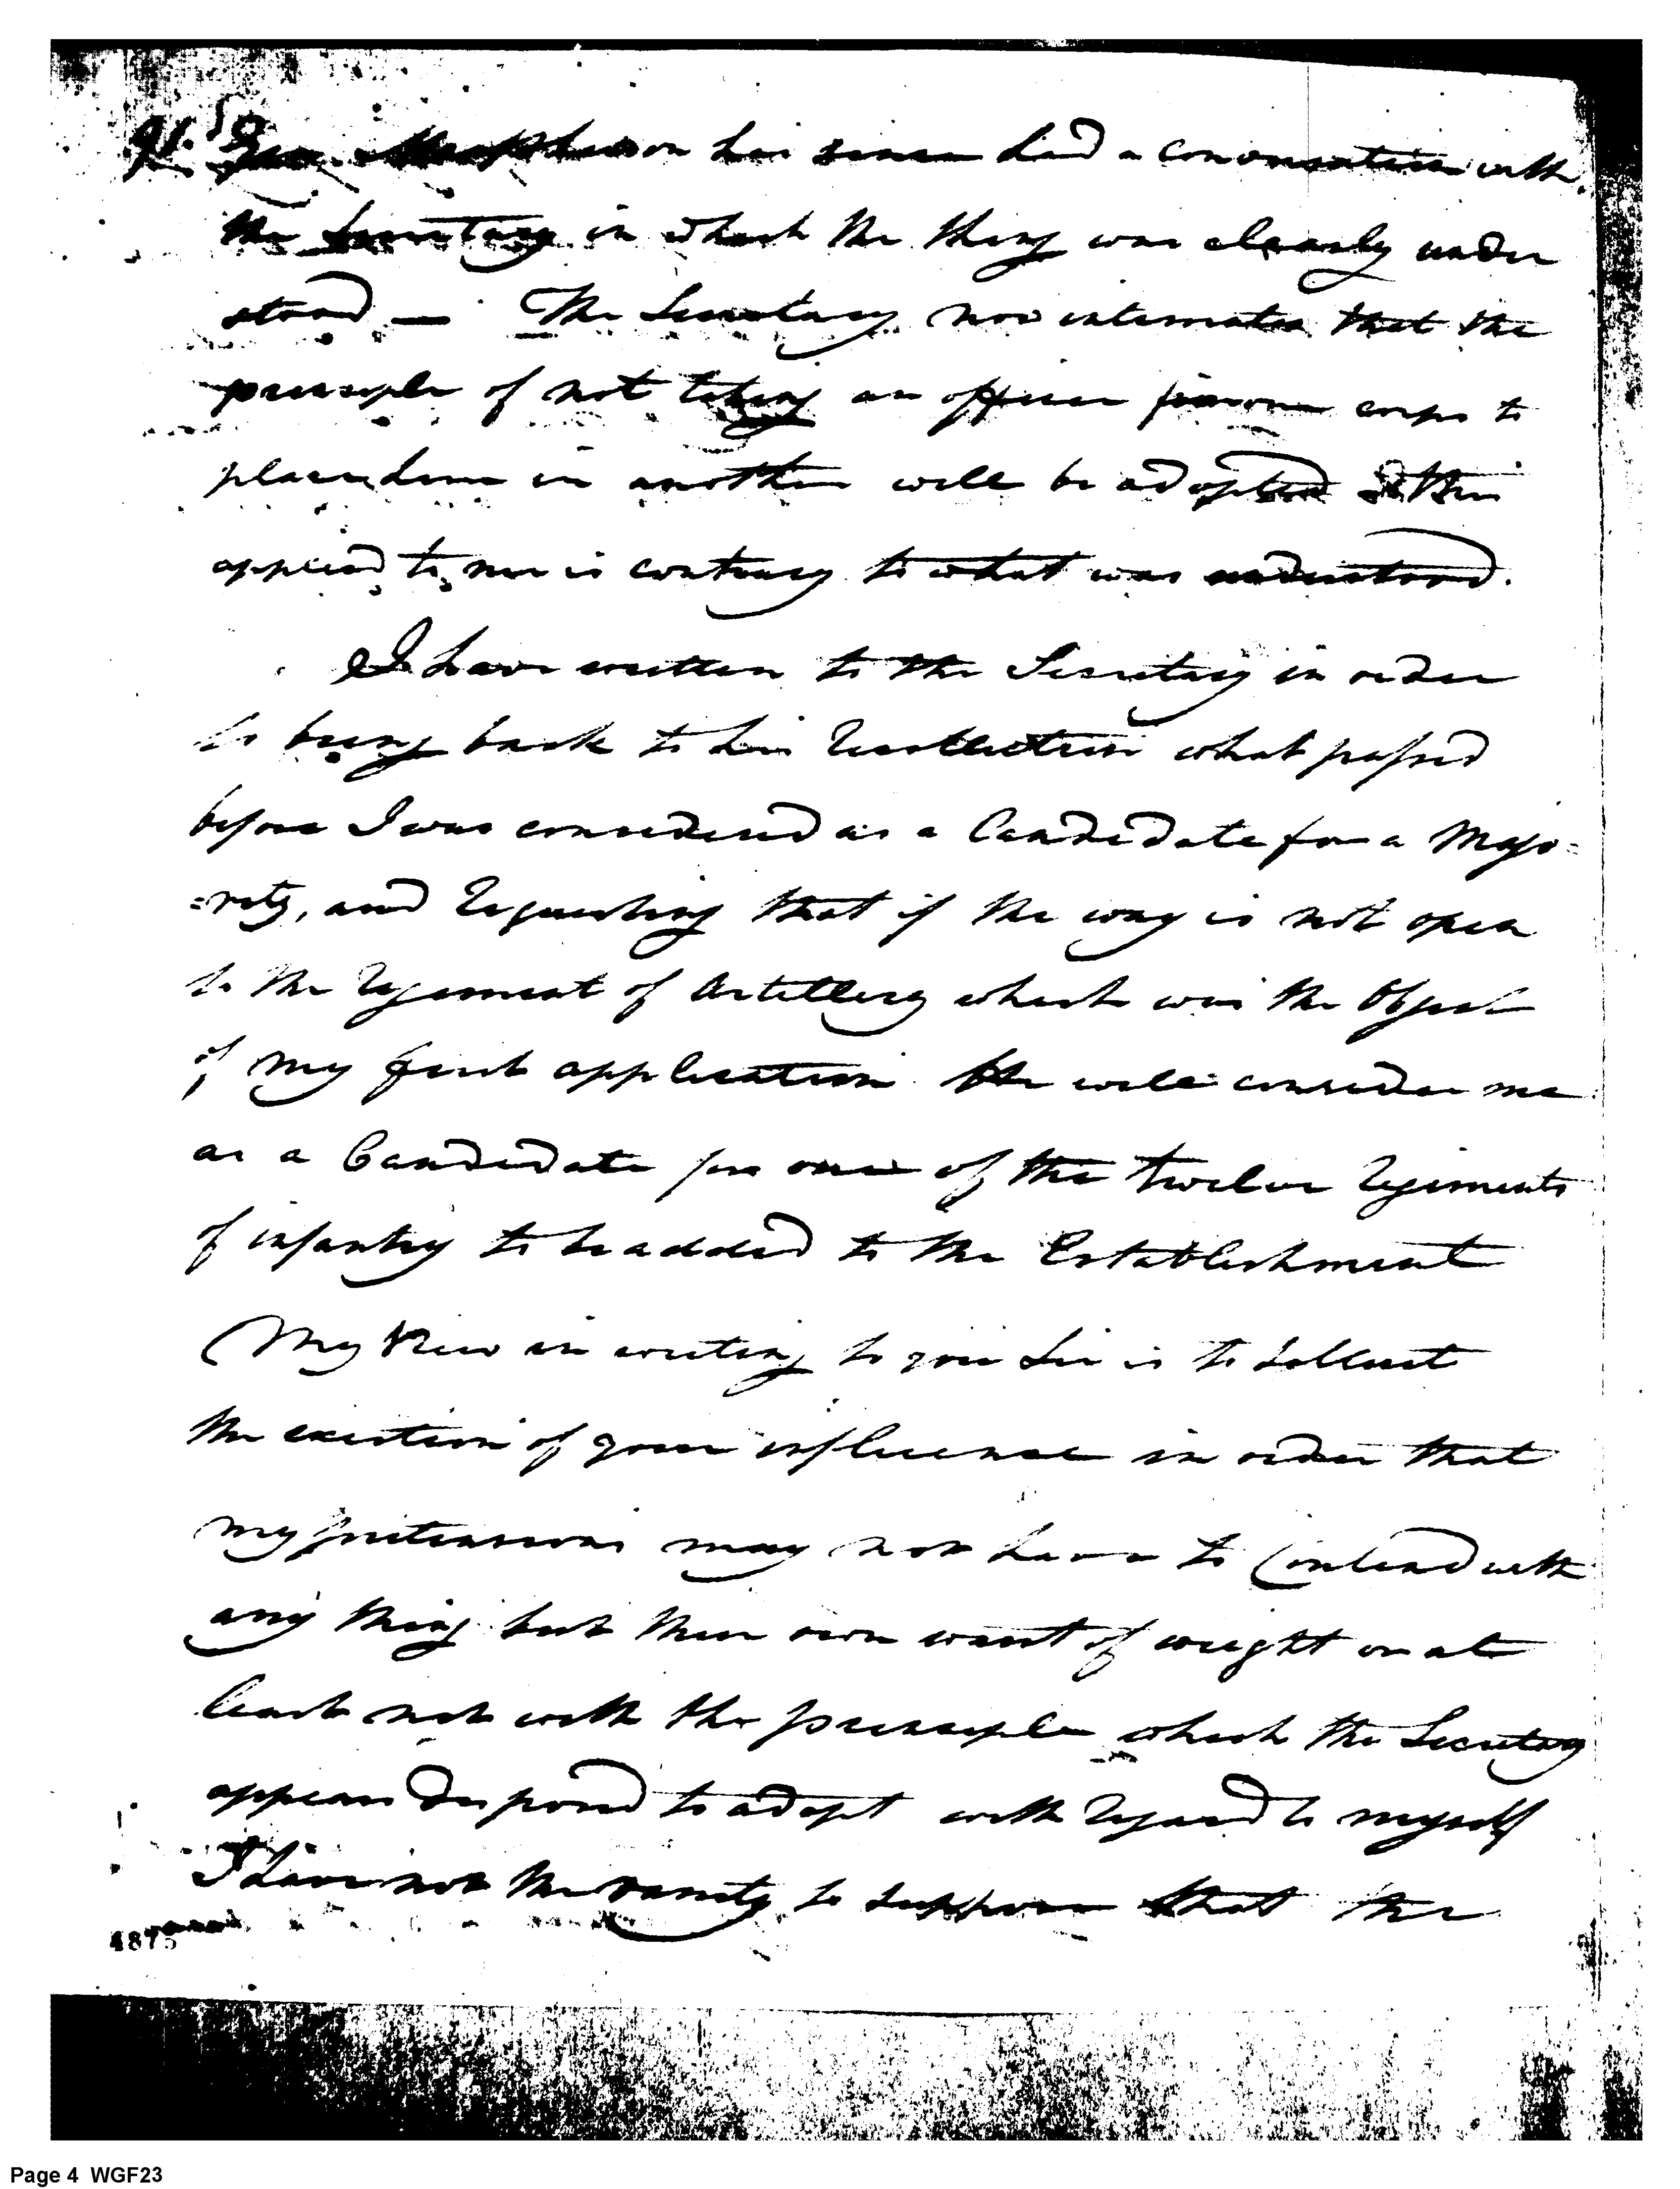 Gen. Macpherson has since had a conversation with
the Secretary in which the thing was clearly under
stood — The Secretary now intimates that the
principle of not taking an officer from one corps to
place him in another will be adopted this
applied to me is contrary to what was understood.
I have written to the Secretary in order
to bring back to his Recollection what passed
before I was considered as a Candidate for a Majo=
=rity, and Requesting that if the way is not open
to the Regiment of Artillery which was the Object
of my first application He will consider me
as a Candidate for one of the twelve Regiments
of infantry to be added to the Establishment
My View in writing to you Sir is to Sollicit
the exertion of your influence in order that
my pretensions may not have to Contend with
any thing but their own want of weight or at
least not with the principle which the Secretary
appears disposed to adopt with Regard to myself
I have not the vanity to suppose that the
4875
Page 4 WGF23